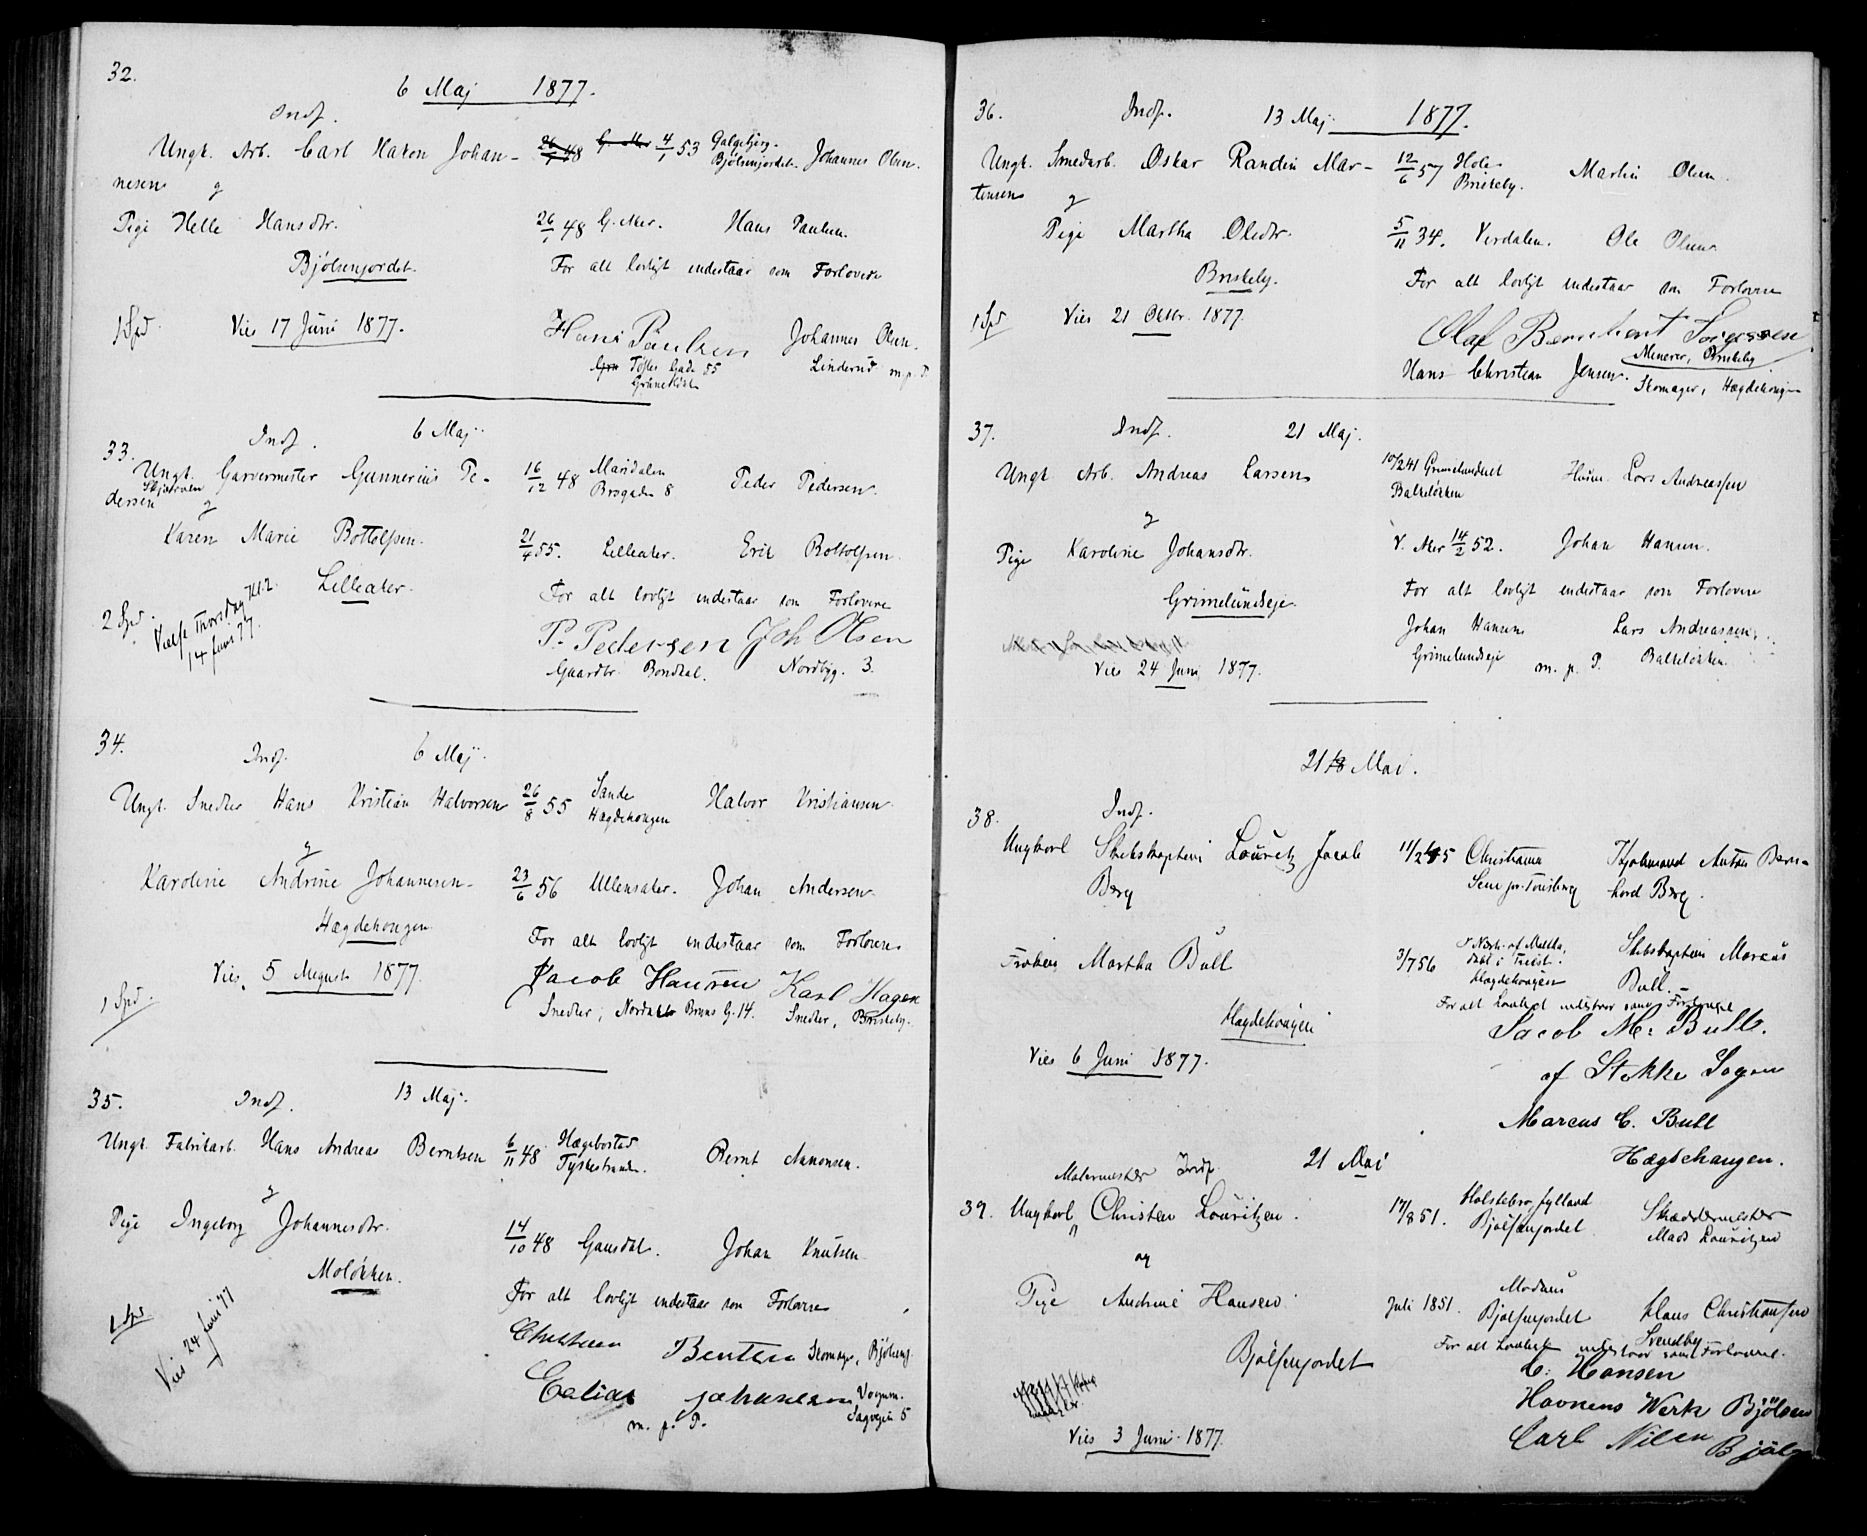 32.
6 Maj 1877.
Indf.
Ungk. Arb. Carl Hakon Johan- 26/1 48 G. Aker 4/1 53 Galgebjerg. Johannes Olsen.
Bjølsenjordet.
nesen
g
Pige Helle Hansdtr. 26/1 48 G. Aker. Hans Paulsen.
Bjølsenjordet. For alt lovligt indestaar som Forlovere
1 Spd. Vies 17 Juni 1877. Hans Paulsen Johannes Olsen.
Toftes Gade 55 Linderud m. p. P.
Grünerløk
33. Indf. 6 Maj.
Ungk. Garvermester Gunnerius Pe- 16/12 48 Maridalen Peder Pedersen.
Brogaden 8
Skjærven
dersen
g
Karen Marie Bottolfsen. 21/4 55. Lilleaker. Erik Boltolfsen.
Lilleaker. For alt lovligt indestaar som Forlovere
2 Spd. Vielse Thorsdag Kl. 2
14 Juni 77.
P. Pedersen Joh Olsen
Gaardbr. Bondal. Nordbyg. 3.
34.
Indf. 6 Maj.
Ungk. Snedker Hans Kristian Halvorsen 26/8 55 Sande Halvor Kristiansen
Hægdehougen
g
Karoline Andrine Johannesen 23/6 56 Ullensaker. Johan Andersen
Hægdehougen For alt lovligt indestaar som Forlovere
Vies 5 August 1877. Jacob Hansen Karl Hagen
1 Spd. Snedker, Nordal Bruns G. 14. Snedker, Briskeby.
35. Indf. 13 Maj.
Ungk. Fabrikarb. Hans Andreas Berntsen 6/11 48 Hægebostad Bernt Aanonsen.
Tyskestranden.
g
Pige Ingeborg Johannesdtr. 14/10 48 Gausdal. Johan Knutsen
Moløkken. For alt lovligt indestaar som Forlovere
1 Spd
Vies 24 Juni 77
Christian Bentsen Skomager, Bjølsenj.
m. p. P. Sagveien 5
36. Indf. 13 Maj 1877.
Ungk. Smedarb. Oskar Randin Mar- 12/6 57 Hole Martin Olsen
Briskeby.
tensen
g
Pige Martha Olsdtr. 5/11 34. Verdalen. Ole Olsen
Briskeby. For alt lovligt indestaar som Forlovere
1 Spd Vies 21 Oktbr. 1877. Olaf Bernhent
Minerer, Briskeby
Hans Christian Jensen. Skomager, Hægdehougen
37. Indf. 21 Maj.
Ungk. Arb. Andreas Larsen 10/2 41 Grimelundeiet Husm. Lars Andreassen
Balkeløkken
g
Pige Karoline Johansdtr. V. Aker 14/2 52. Johan Hansen.
Grimelundseje. For alt lovligt indestaar som Forlovere
Johan Hansen Lars Andreassen,
Grimelundseje m. p. P. Balkeløkken
Vies 24 Juni 1877.
21 Mai.
38. Indf.
Ungkarl Skibskaptein Lauritz Jacob 11/2 45 Christiania Kjøbmand Anton Bern-
Berg Sem pr. Tønsberg hard Berg.
Frøken Martha Bull 3/7 56 Skibskaptein Marcus
Hægdehougen Bull.
For alt Lovligt indestaar som Forlovere
Hægdehougen Jacob M. Bull.
Vies 6 Juni 1877. af Stokke Sogn
Marcus C. Bull
Hægdehaugen.
Malermester Indf. 21 Mai
39. Ungkarl Christen Lauritzen. 17/8 51. Holstebro, Jylland Skræddermester
Bjølsenjordet Mads Lauritzen
og
Pige Andrine Hansen Juli 1851. Modum
Bjølsenjordet Hans Christiansen
Svendby
Bjølsenjordet For alt Lovligt indestaar som Forlovere.
C. Hansen
Havnens Werk Bjølsen
Vies 3 Juni 1877. Carl Nilsen Bjøls